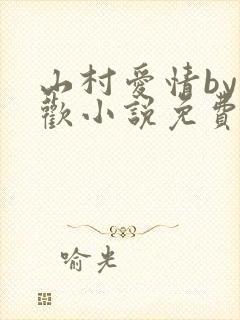 山村愛情by
歡小說免費
喻光